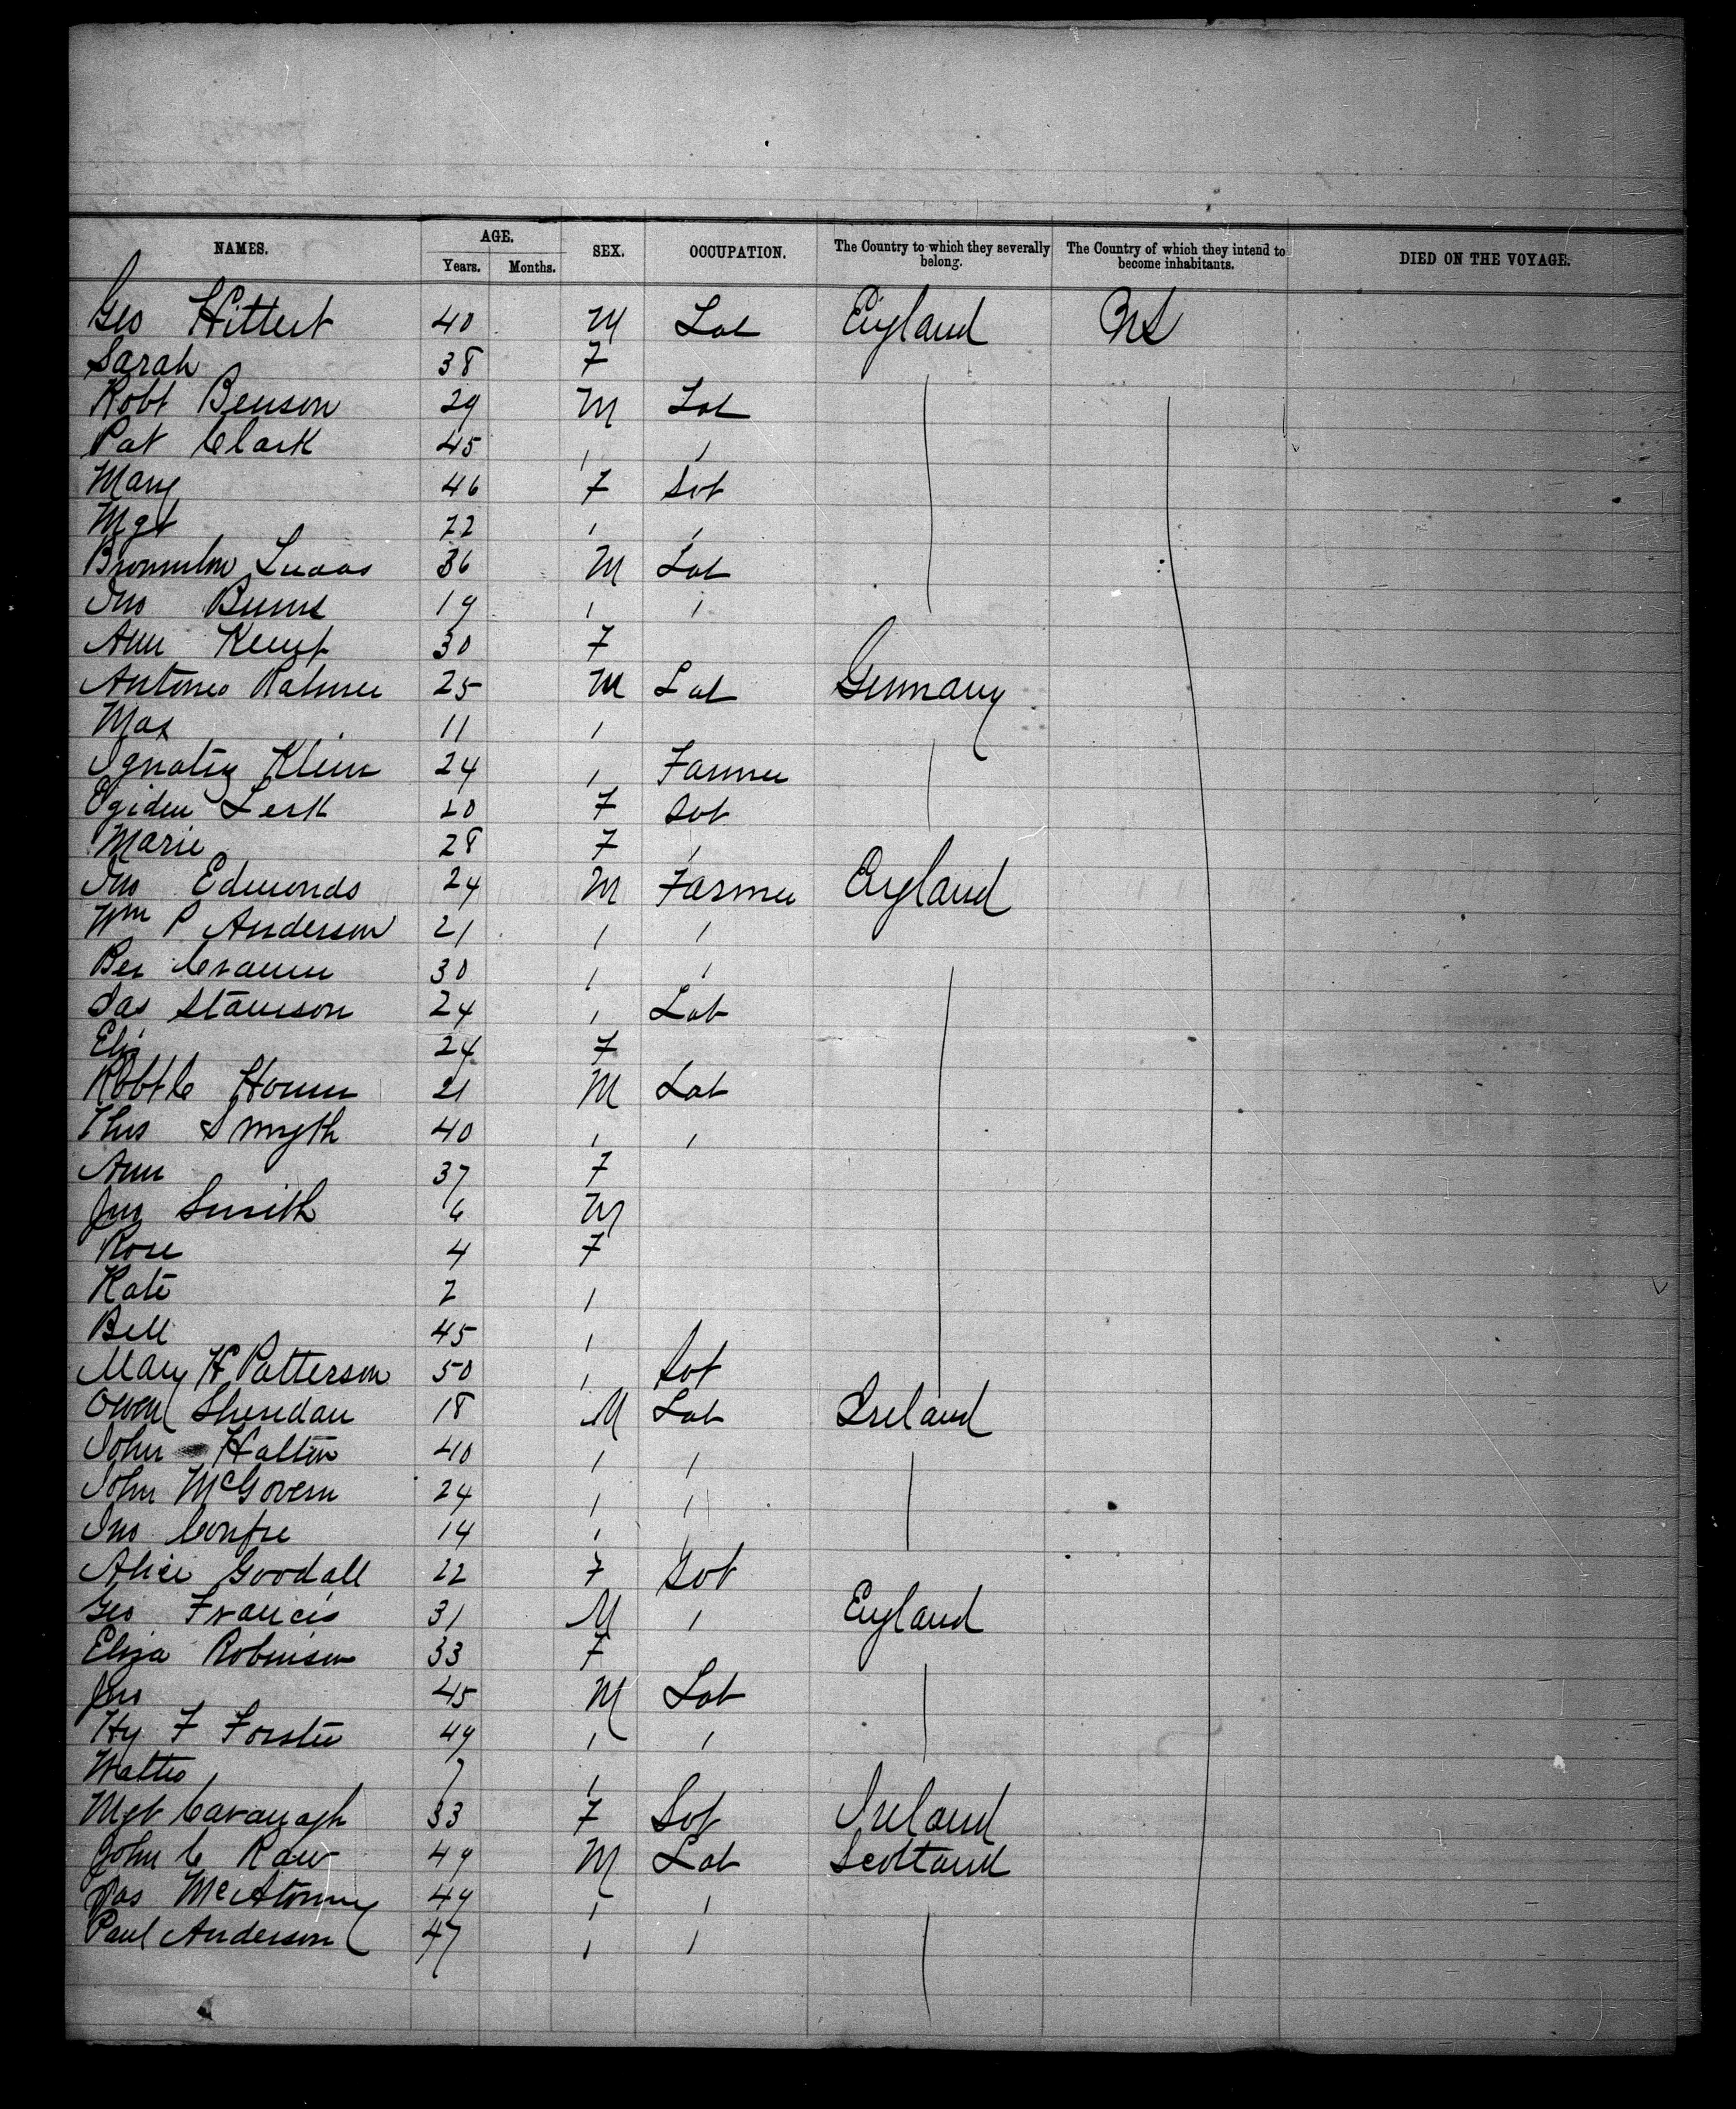 NAMES. AGE. SEX. OCCUPATION. The Country to which they severally belong. The Country of which they intend to become inhabitants. DIED ON THE VOYAGE.
Years. Months.
Geo Hittert 40 M Lab England US
Sarah 38 F
Robt Benson 29 M Lab
Pat Clark 45 " "
Mary 46 F Sot
Mgt 22 " "
Lucas 36 M Lab
Jno Burns 19 " "
Ann Kempt 30 F
Antonio 25 M Lab Germany
Max 11 "
Ignatz Klein 24 " Farmer
Egiden Lerk 20 F Sot
Marie 28 F "
Jno Edmonds 24 M Farmer England
Wm P Anderson 21 " "
30 " "
Jas 24 " Lab
Eliz 24 F
Robt C 21 M Lab
Thos Smyth 40 " "
Ann 37 F
Jno Smith 6 M
Rose 4 F
Kate 2 "
Bell 45 "
Mary H Patterson 50 " Sot
Owen Sheridan 18 M Lab Ireland
John Halton 40 " "
John McGovern 24 " "
Jno 14 " "
Alice Goodall 22 F Sot
Geo Francis 31 M " England
Eliza Robinson 33 F
Jno 45 M Lab
Hy F Forster 49 " "
Walter 7 "
Mgt Cavanagh 33 F Sot Ireland
John C Raw 49 M Lab Scotland
Jas 49 " "
Paul Anderson 47 " "